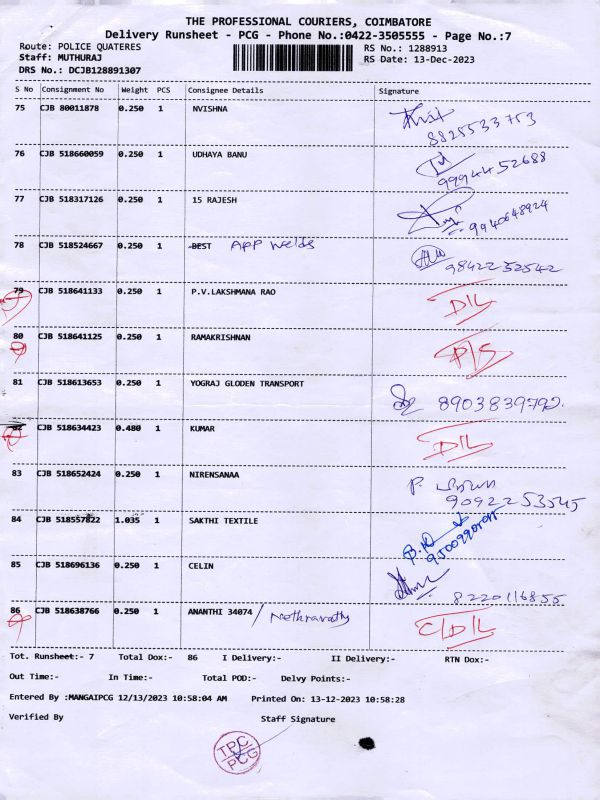 THE PROFESSIONAL COURIERS, COIMBATORE
Delivery Runsheet - PCG - Phone No.:0422-3505555 - Page No.:7
Route: POLICE QUATERES RS No.: 1288913
Staff: MUTHURAJ RS Date: 13-Dec-2023
DRS No.: DCJB128891307
S No Consignment No Weight PCS Consignee Details Signature
75 CJB 80011878 0.250 1 NVISHNA
8825533753
76 CJB 518660059 0.250 1 UDHAYA BANU
9994452688
77 CJB 518317126 0.250 1 15 RAJESH
9940648924
78 CJB 518524667 0.250 1 BEST App Welds
9842252542
79 CJB 518641133 0.250 1 P.V.LAKSHMANA RAO D/L
80 CJB 518641125 0.250 1 RAMAKRISHNAN P/S
81 CJB 518613653 0.250 1 YOGRAJ GLODEN TRANSPORT 8903839792.
82 CJB 518634423 0.480 1 KUMAR D/L
83 CJB 518652424 0.250 1 NIRENSANAA P.
9092253545
84 CJB 518557822 1.035 1 SAKTHI TEXTILE
85 CJB 518696136 0.250 1 CELIN
8220116855
86 CJB 518638766 0.250 1 ANANTHI 34074 / Nethravathy C/D/L
Tot. Runsheet:- 7 Total Dox:- 86 I Delivery:- II Delivery:- RTN Dox:-
Out Time:- In Time:- Total POD:- Delvy Points:-
Entered By :MANGAIPCG 12/13/2023 10:58:04 AM Printed On: 13-12-2023 10:58:28
Verified By Staff Signature
TPC
PCG